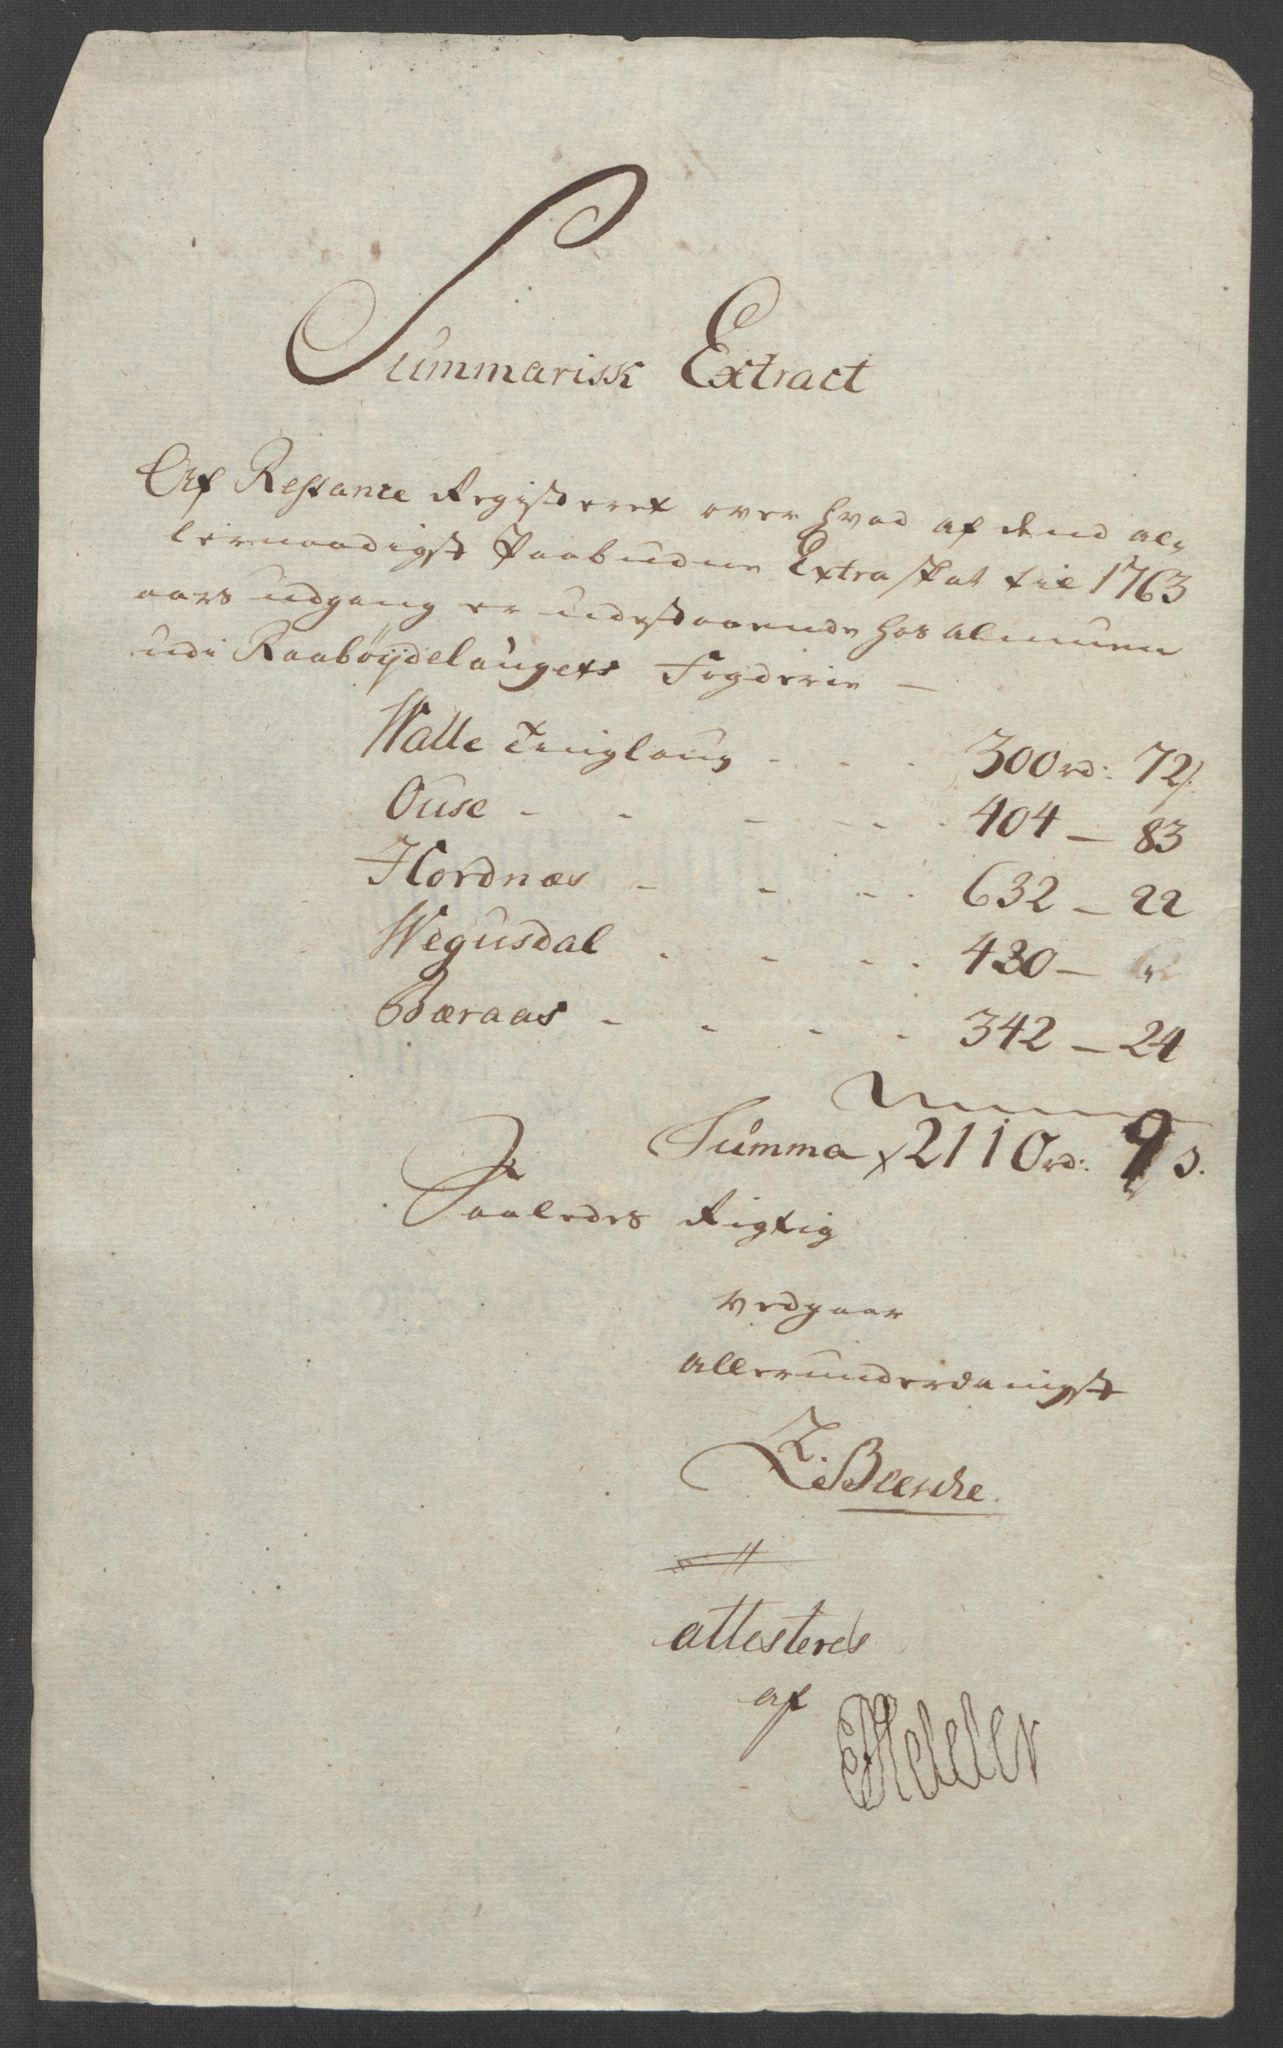 Summarisk Extract
Af Restance Registeret over hvad af dend al,
lernaadigst Paabudne Extra Skat til 1763
aars udgang er udestaaende hos almuen
udi Raabøÿdelaugets Fogderie —
Walle Tinglaug - - - 300 rd: 72 s:
Ouse - - - - - 404 — 83
Hordnæs - - - - 632 — 22
Wegusdal - - - - 430 —
Bæraas - - - - 342 — 24
Summa x 2110 rd: 9 s.
Saaledes Rigtig
vedgaar
allerunderdanigst
attesteres
af